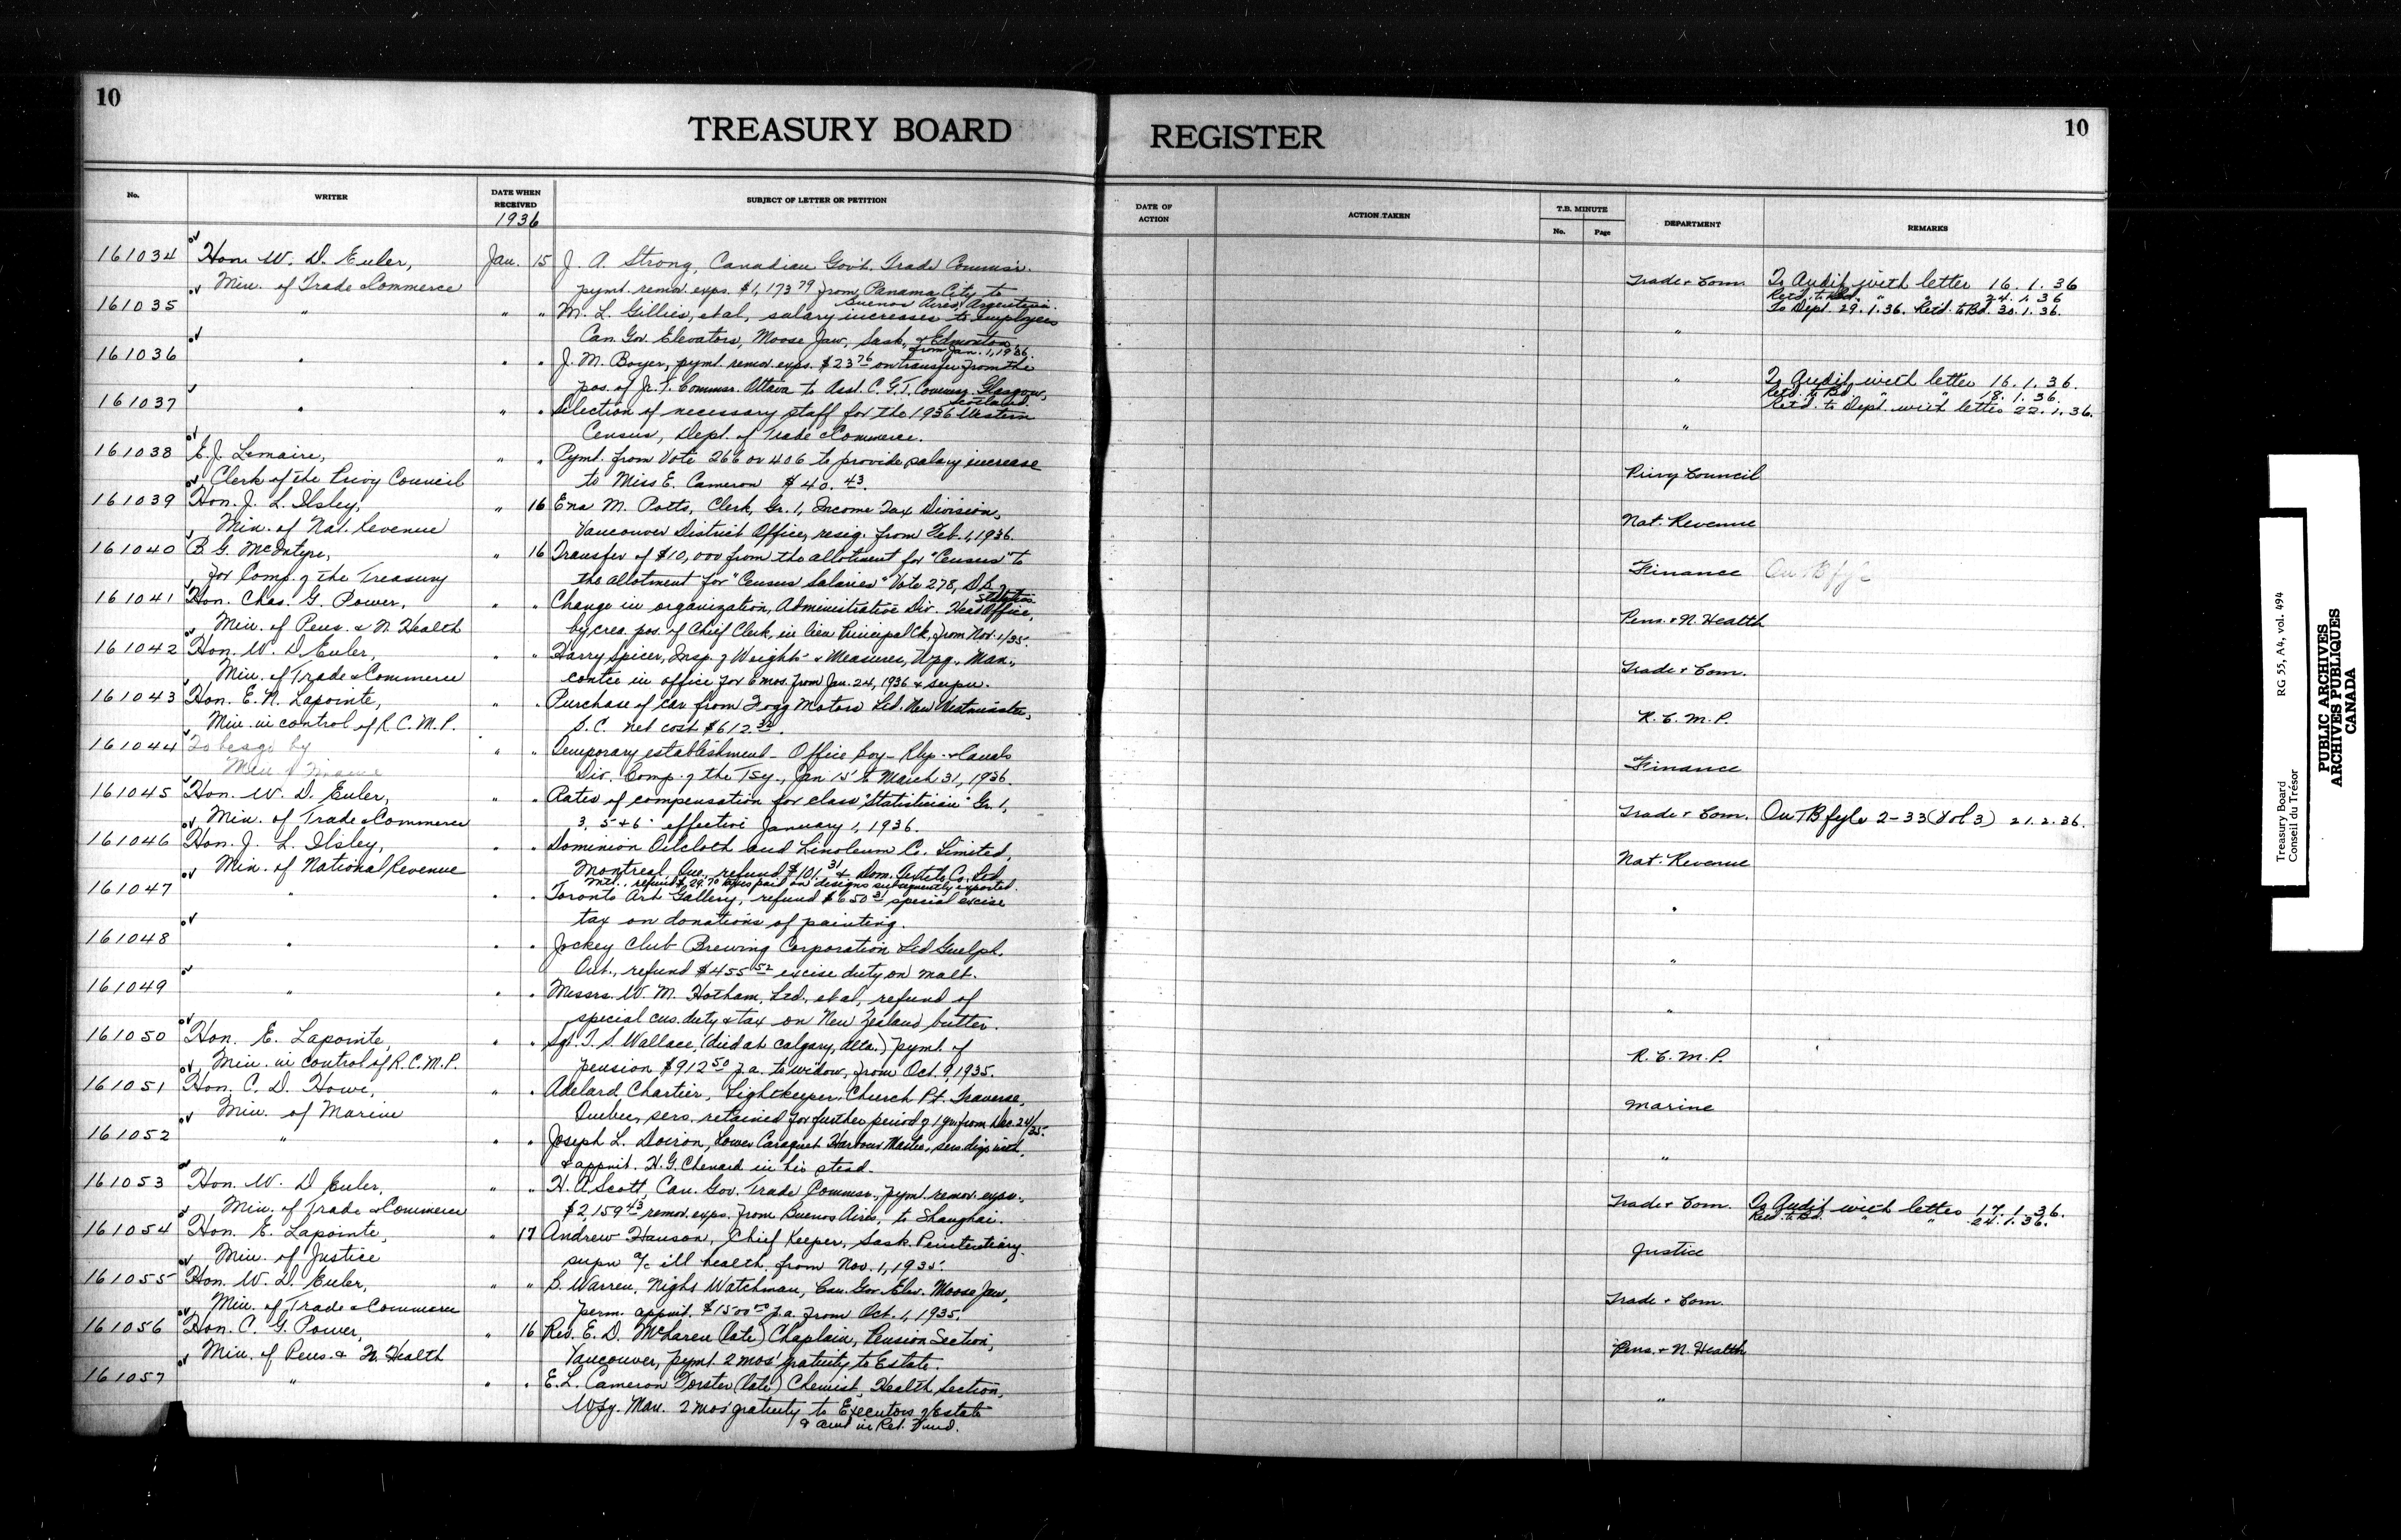 10
TREASURY BOARD REGISTER
10
No. WRITER DATE WHEN RECEIVED SUBJECT OF LETTER OR PETITION DATE OF ACTION ACTION TAKEN T.B. MINUTE No. Page DEPARTMENT REMARKS
1936
161034 Hon. W. D. Euler, Jan. 15 J. A. Strong, Canadian Gov't. Trade Commsr. Trade & Com. To Audit with letter 16.1.36
Min. of Trade & Commerce pymt. remov. exps. $1,173 79 from Panama City to Buenos Aires, Argentina Retd. to Bd. " " 24.1.36
161035 " " " M. L. Gillies, et al, salary increases to employees " To Dept. 29.1.36. Retd. to Bd. 30.1.36.
Can. Gov. Elevators, Moose Jaw, Sask. & Edmonton from Jan. 1, 1936.
161036 " " " J. M. Boyer, pymt. remov. exps. $23 76 on transfer from the " To Audit with letter 16.1.36.
pos. of Jr. T. Commsr. Ottawa to Asst. C. G. T. Commsr. Glasgow, Scotland. Retd. to Bd. " " 18.1.36.
Retd. to Dept. with letter 22.1.36.
161037 " " " Selection of necessary staff for the 1936 Western "
Census, Dept. of Trade & Commerce.
161038 E. J. Lemaire, " " Pymt. from Vote 266 or 406 to provide salary increase Privy Council
Clerk of the Privy Council to Miss E. Cameron $40.43.
161039 Hon. J. L. Ilsley, " 16 Ena M. Potts, Clerk, Gr. 1, Income Tax Division, Nat. Revenue
Min. of Nat. Revenue Vancouver District Office, resig. from Feb. 1, 1936.
161040 B. G. McIntyre, " 16 Transfer of $10,000 from the allotment for "Census" to Finance On TB fyle
for Comp. of the Treasury the allotment for "Census Salaries" Vote 278, D. B. Statistics
161041 Hon. Chas. G. Power, " " Change in organization, Administrative Div. Head Office, Pens. & N. Health
Min. of Pens. & N. Health by crea. pos. of Chief Clerk, in lieu Principal Ck, from Nov. 1/35.
161042 Hon. W. D. Euler, " " Harry Spicer, Insp. of Weights & Measures, Wpg., Man., Trade & Com.
Min. of Trade & Commerce contce in office for 6 mos. from Jan. 24, 1936 & supn.
161043 Hon. E. N. Lapointe, " " Purchase of car from Fogg Motors Ltd. New Westminster, R. C. M. P.
Min. in control of R.C.M.P. B. C. net cost $612.
161044 " " Temporary establishment - Office Boy - Rlys. & Canals Finance
Min of Finance Div. Comp. of the Tsy., Jan 15 to March 31, 1936.
161045 Hon. W. D. Euler, " " Rates of compensation for class "Statistician" Gr. 1, Trade & Com. On TB fyle 2-33 (Vol 3) 21.2.36.
Min. of Trade & Commerce 3, 5 & 6 effective January 1, 1936.
161046 Hon. J. L. Ilsley, " " Dominion Oilcloth and Linoleum Co. Limited, Nat. Revenue
Min. of National Revenue Montreal, Que., refund $101.31 & Dom. Textile Co. Ltd
Mtl., refund $29.70 taxes paid on designs subsequently exported.
161047 " " " Toronto Art Gallery, refund $650 31 special excise "
tax on donations of painting.
161048 " " " Jockey Club Brewing Corporation Ltd Guelph, "
Ont., refund $455 52 excise duty on malt.
161049 " " " Messrs. W. M. Hotham, Ltd., et al, refund of "
special cus. duty & tax on New Zealand butter.
161050 Hon. E. Lapointe, " " Sgt. T. S. Wallace, (died at Calgary, Alta.) pymt. of R. C. M. P.
Min. in control of R.C.M.P. pension $912 50 p.a. to widow, from Oct. 9, 1935.
161051 Hon. C. D. Howe, " " Adelard Chartier, Lightkeeper, Church Pt. Traverse, Marine
Min. of Marine Quebec, sers. retained for further period of 1 yr. from Dec. 24/35.
161052 " " " Joseph L. Doiron, Lower Caraquet Harbour Master, sers disp. with, "
& appmt. H. G. Chenard in his stead.
161053 Hon. W. D Euler, " " H. A. Scott, Can. Gov. Trade Commsr., pymt. remov. exps., Trade & Com. To Audit with letter 17.1.36.
Min. of Trade & Commerce $2,159 43 remov. exps. from Buenos Aires, to Shanghai. Retd. to Bd. " " 24.1.36.
161054 Hon. E. Lapointe, " 17 Andrew Hanson, Chief Keeper, Sask. Penitentiary. Justice
Min. of Justice supn a/c ill health, from Nov. 1, 1935.
161055 Hon. W. D. Euler, " " B. Warren, Night Watchman, Can. Gov. Elev. Moose Jaw, Trade & Com.
Min. of Trade & Commerce perm. appmt. $1500 00 p.a. from Oct. 1, 1935.
161056 Hon. C. G. Power, " 16 Rev. E. D. McLaren (late) Chaplain, Pension Section, Pens. & N. Health
Min. of Pens. & N. Health Vancouver, pymt. 2 mos' gratuity to Estate.
161057 " " " E. L. Cameron Forster (late) Chemist, Health Section, "
Wpg. Man. 2 mos' gratuity to Executors of Estate
& amt in Ret. Fund.
Treasury Board RG 55, A4, vol. 494
Conseil du Trésor
PUBLIC ARCHIVES
ARCHIVES PUBLIQUES
CANADA